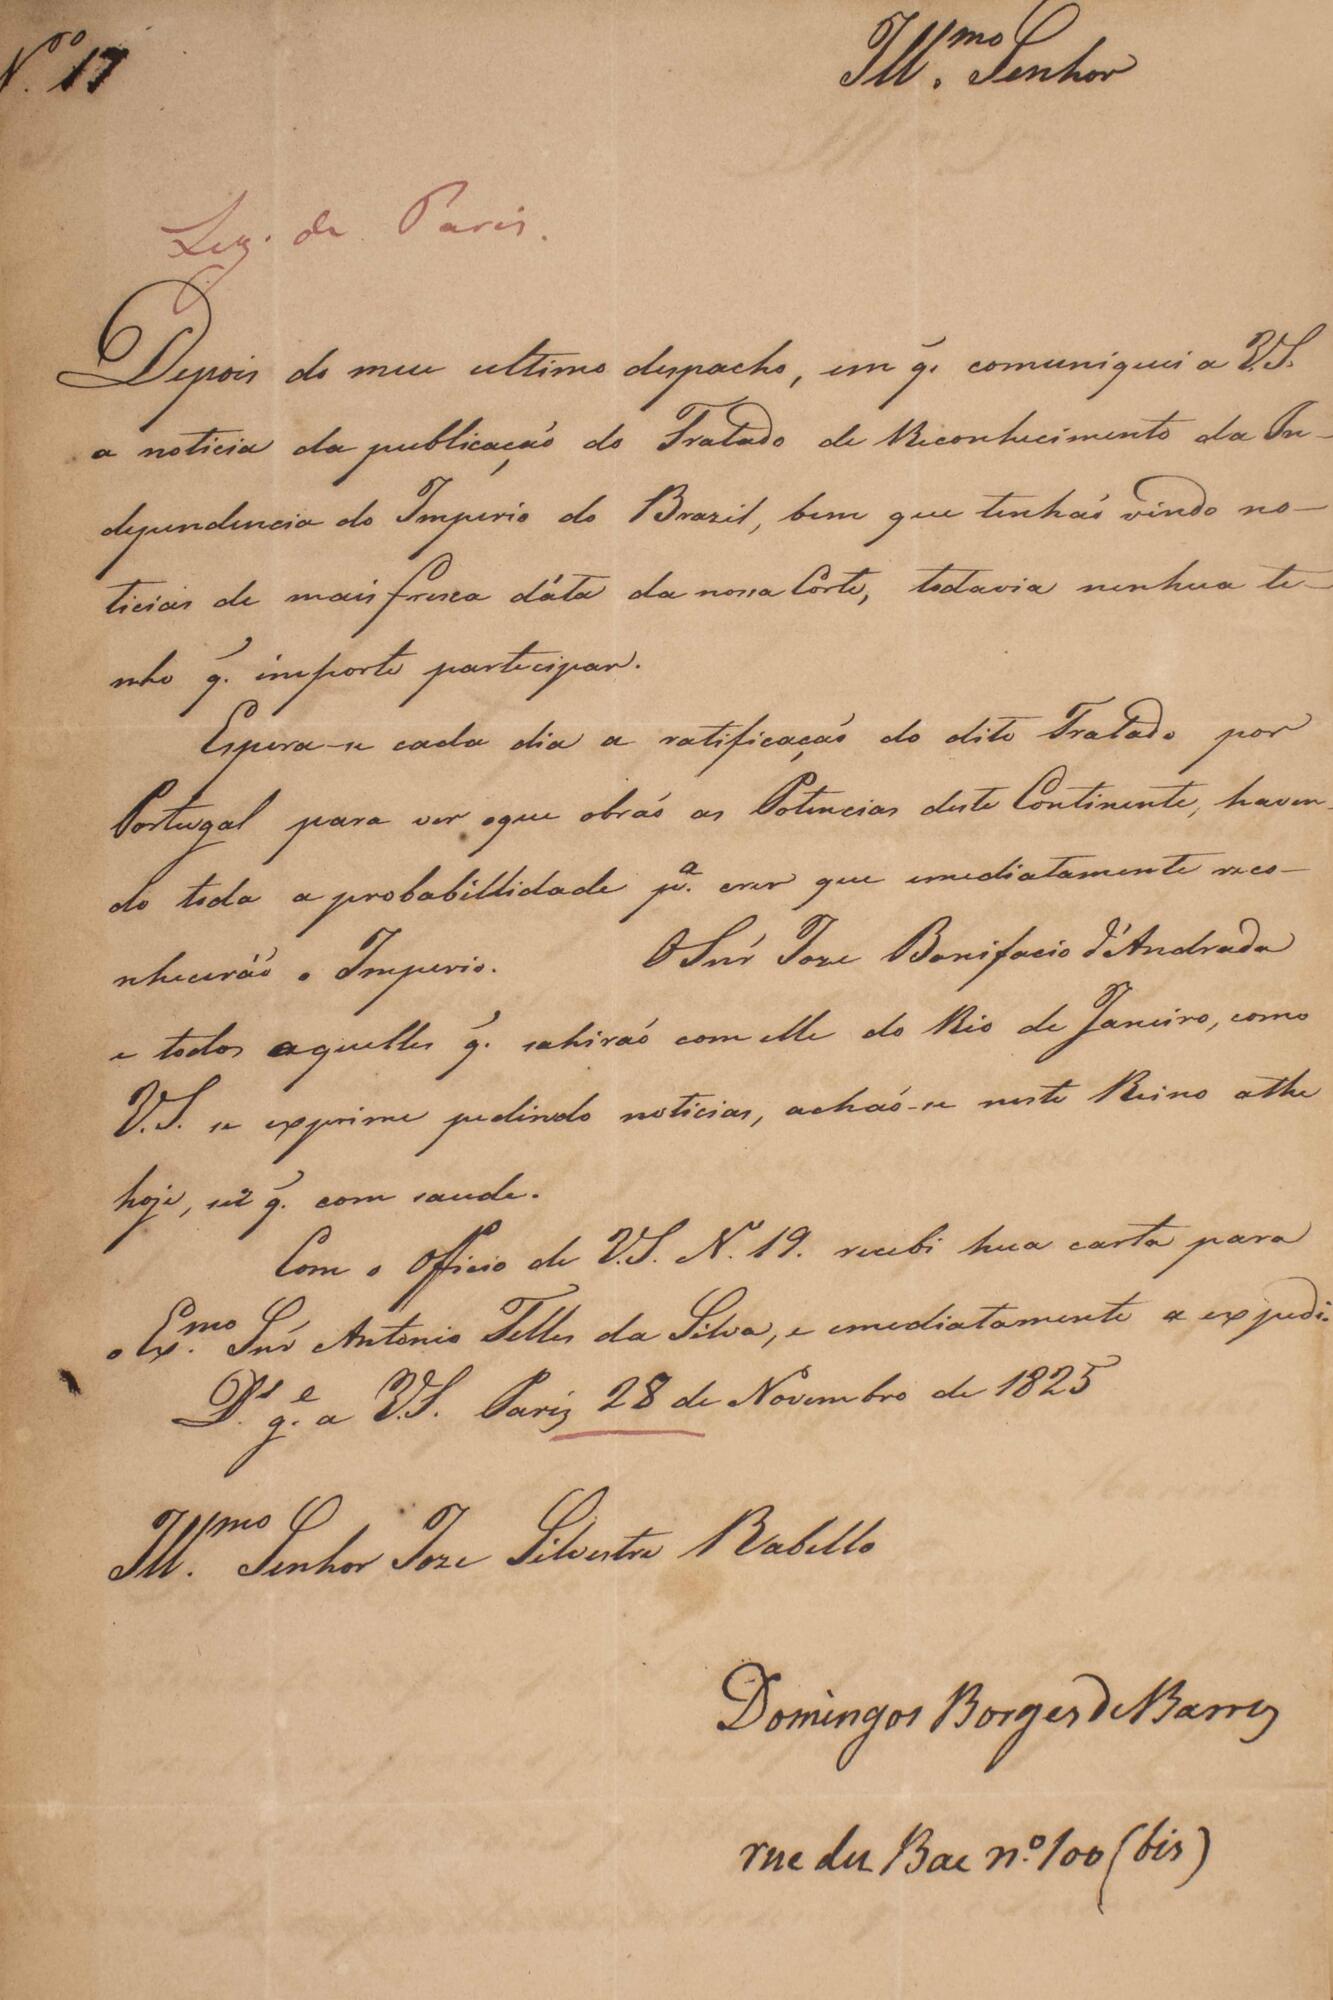 N.º 17
Ill.mo Senhor
Leg. de Paris.
Depois do meu ultimo despacho, em q̃. comuniquei a V.S.
a noticia da publicação do Tratado de Reconhecimento da In-
dependencia do Imperio do Brazil, bem que tenhaõ vindo no-
ticias de mais fresca dáta da nossa Côrte, todavia nenhua te-
nho q̃. importe participar.
Espera-se cada dia a ratificaçaõ do dito Tratado por
Portugal para ver oque obraõ as Potencias deste Continente, haven-
do toda a probabillidade p.ª crer que emediatamente reco-
nheceráõ o Imperio. O Snr̃ Joze Bonifacio d'Andrada
e todos aquelles q̃. sahiraõ com elle do Rio de Janeiro, como
V.S. se exprime pedindo noticias, achaõ-se neste Reino athe
hoje, sei q̃. com saude.
Com o Officio de V.S. N.º 19. recebi hua carta para
o Ex.mo Snr̃ Antonio Telles da Silva, e emediatamente a expedi.
D.s g.e a V.S. Pariz 28 de Novembro de 1825
Ill.mo Senhor Joze Silvestre Rabello
Domingos Borges de Barros
rue du Bac n.º 100 (bis)